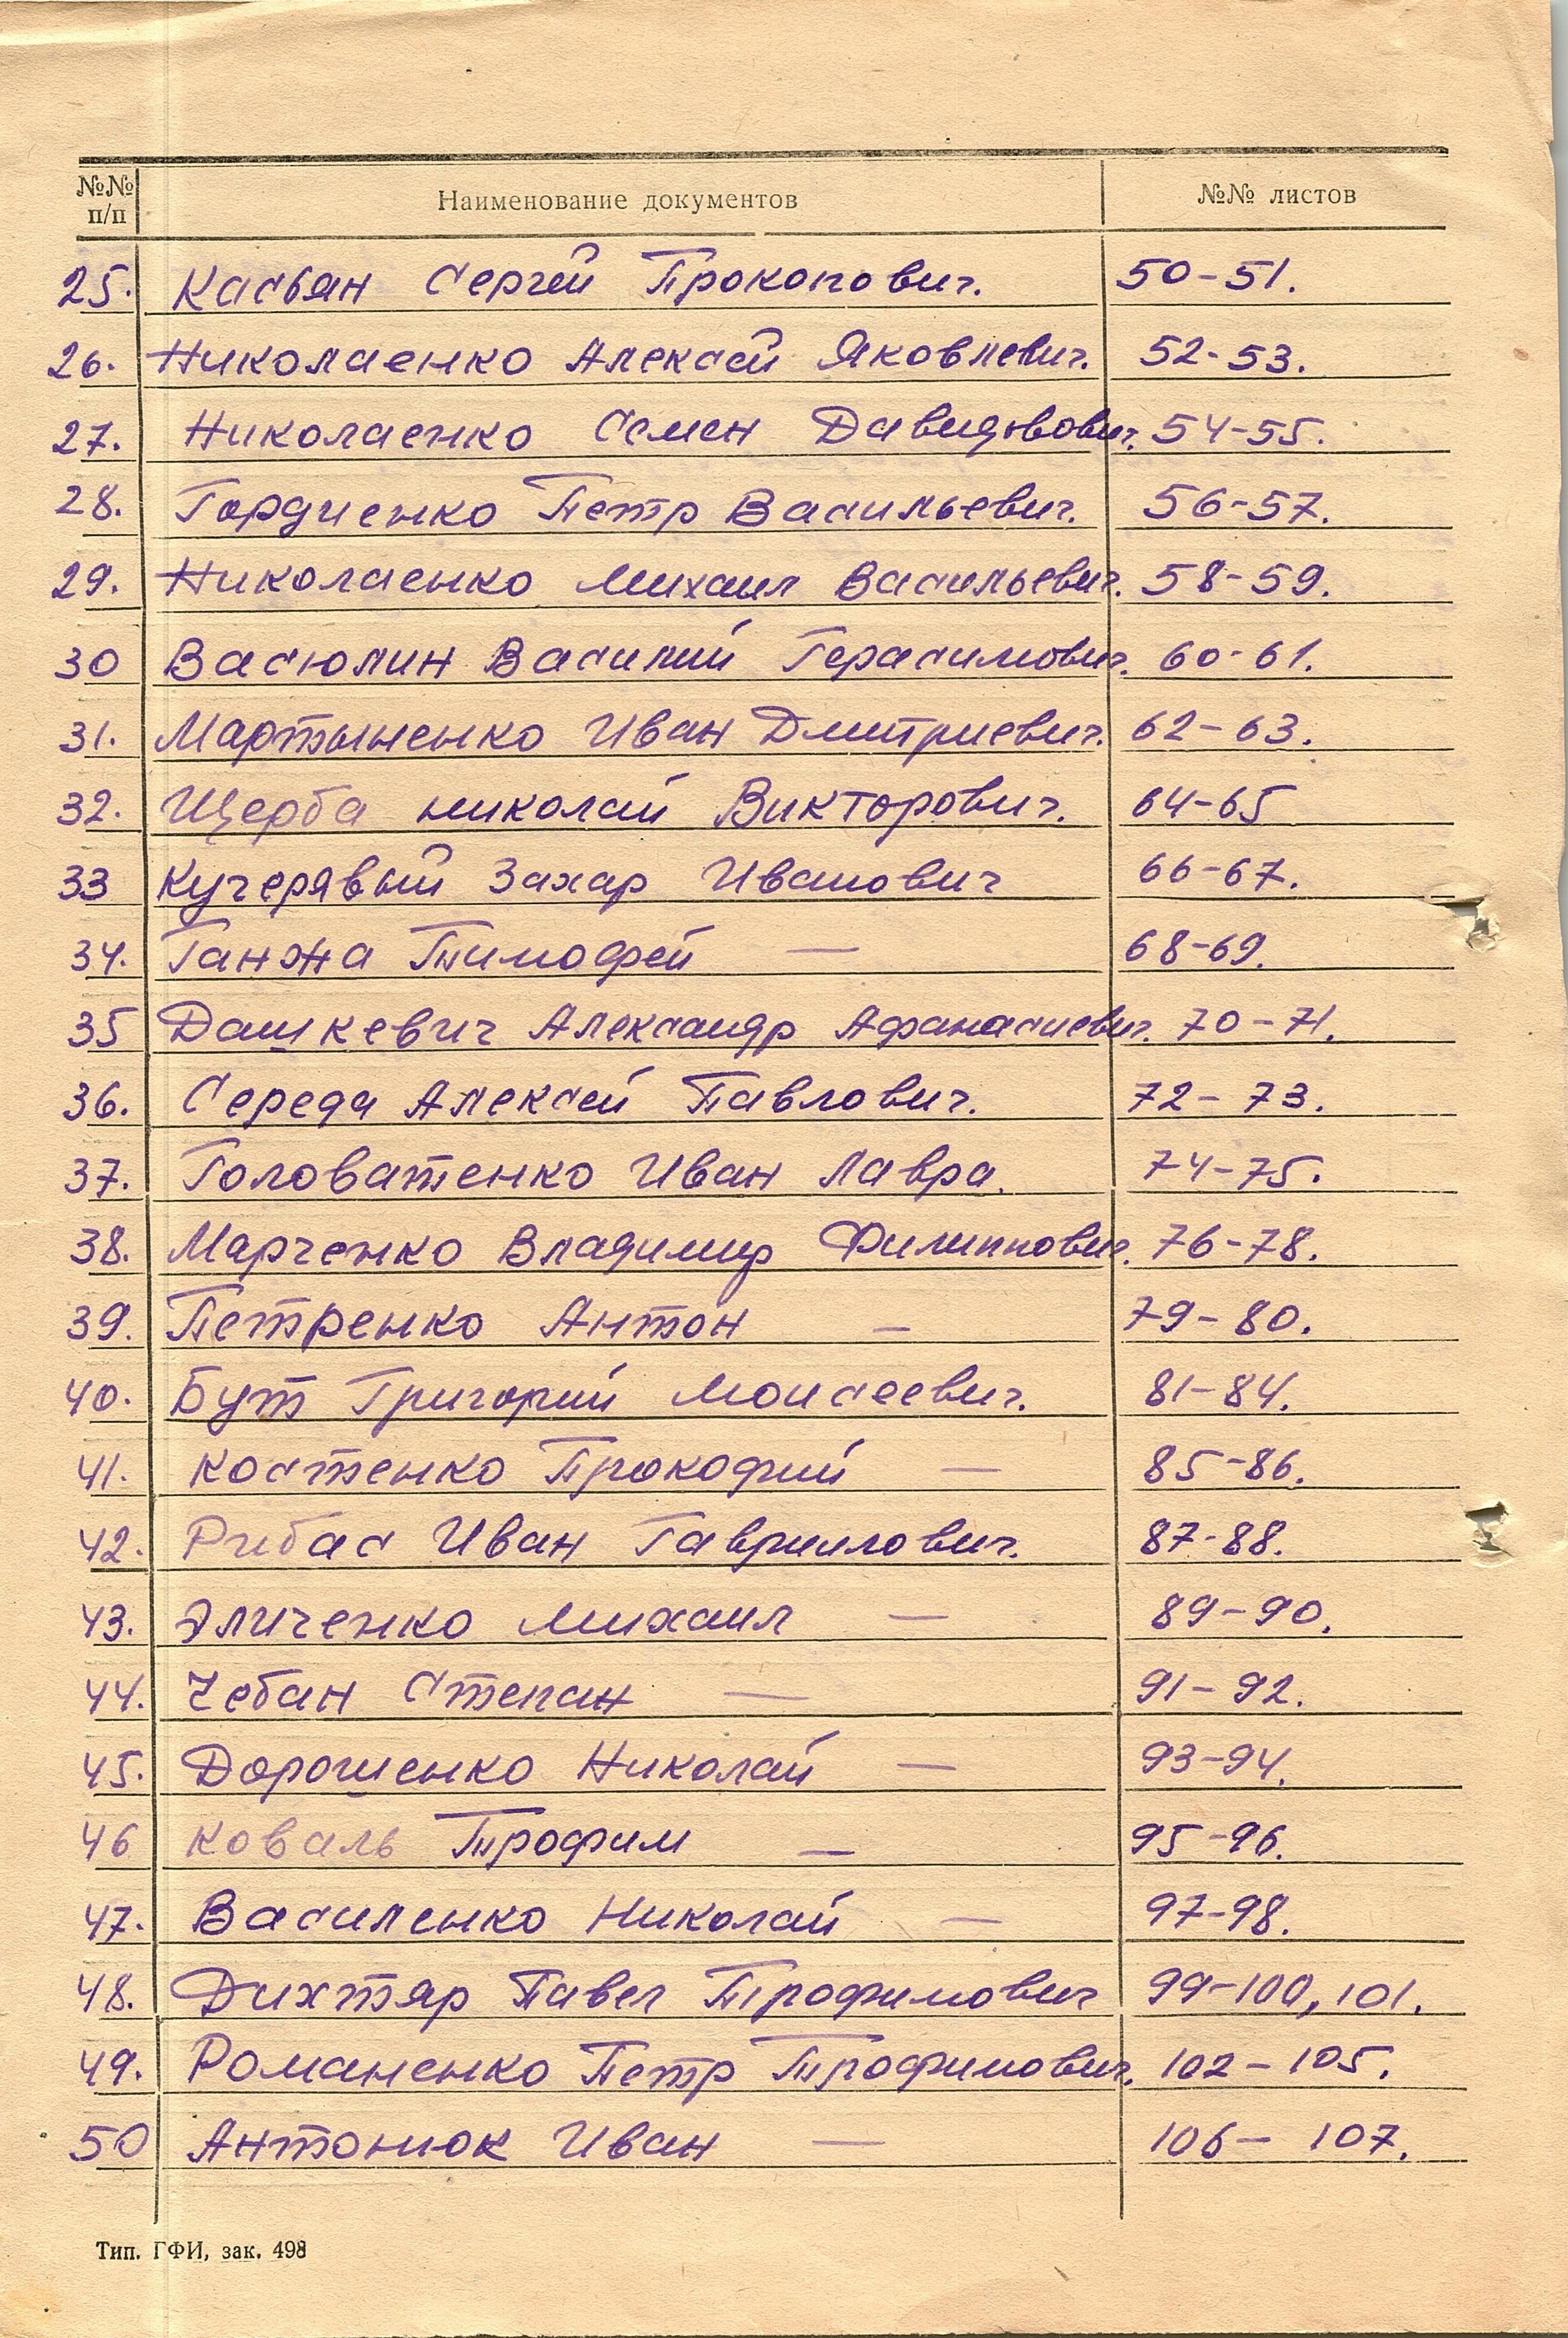 №№ п/п Наименование документов №№ листов
25. Касьян Сергей Прокопович. 50-51.
26. Николаенко Алексей Яковлевич. 52-53.
27. Николаенко Семен Давидович. 54-55.
28. Гордиенко Петр Васильевич. 56-57.
29. Николаенко Михаил Васильевич. 58-59.
30 Васюлин Василий Герасимович. 60-61.
31. Мартыненко Иван Дмитриевич. 62-63.
32. Щерба николай Викторович. 64-65
33 Кучерявый Захар Иванович 66-67.
34. Ганжа Тимофей — 68-69.
35 Дашкевич Александр Афанасиевич. 70-71.
36. Середа Алексей Павлович. 72-73.
37. Головатенко Иван Лавра. 74-75.
38. Марченко Владимир Филиппович. 76-78.
39. Петренко Антон — 79-80.
40. Бут Григорий Моисеевич. 81-84.
41. Костенко Прокофий — 85-86.
42. Рибас Иван Гавриилович. 87-88.
43. Эличенко Михаил — 89-90.
44. Чебан Степан — 91-92.
45. Дорошенко Николай — 93-94.
46 Коваль Трофим — 95-96.
47. Василенко Николай — 97-98.
48. Дихтяр Павел Трофимович 99-100, 101.
49. Романенко Петр Трофимович. 102-105.
50 Антонюк Иван — 106-107.
Тип. ГФИ, зак. 498